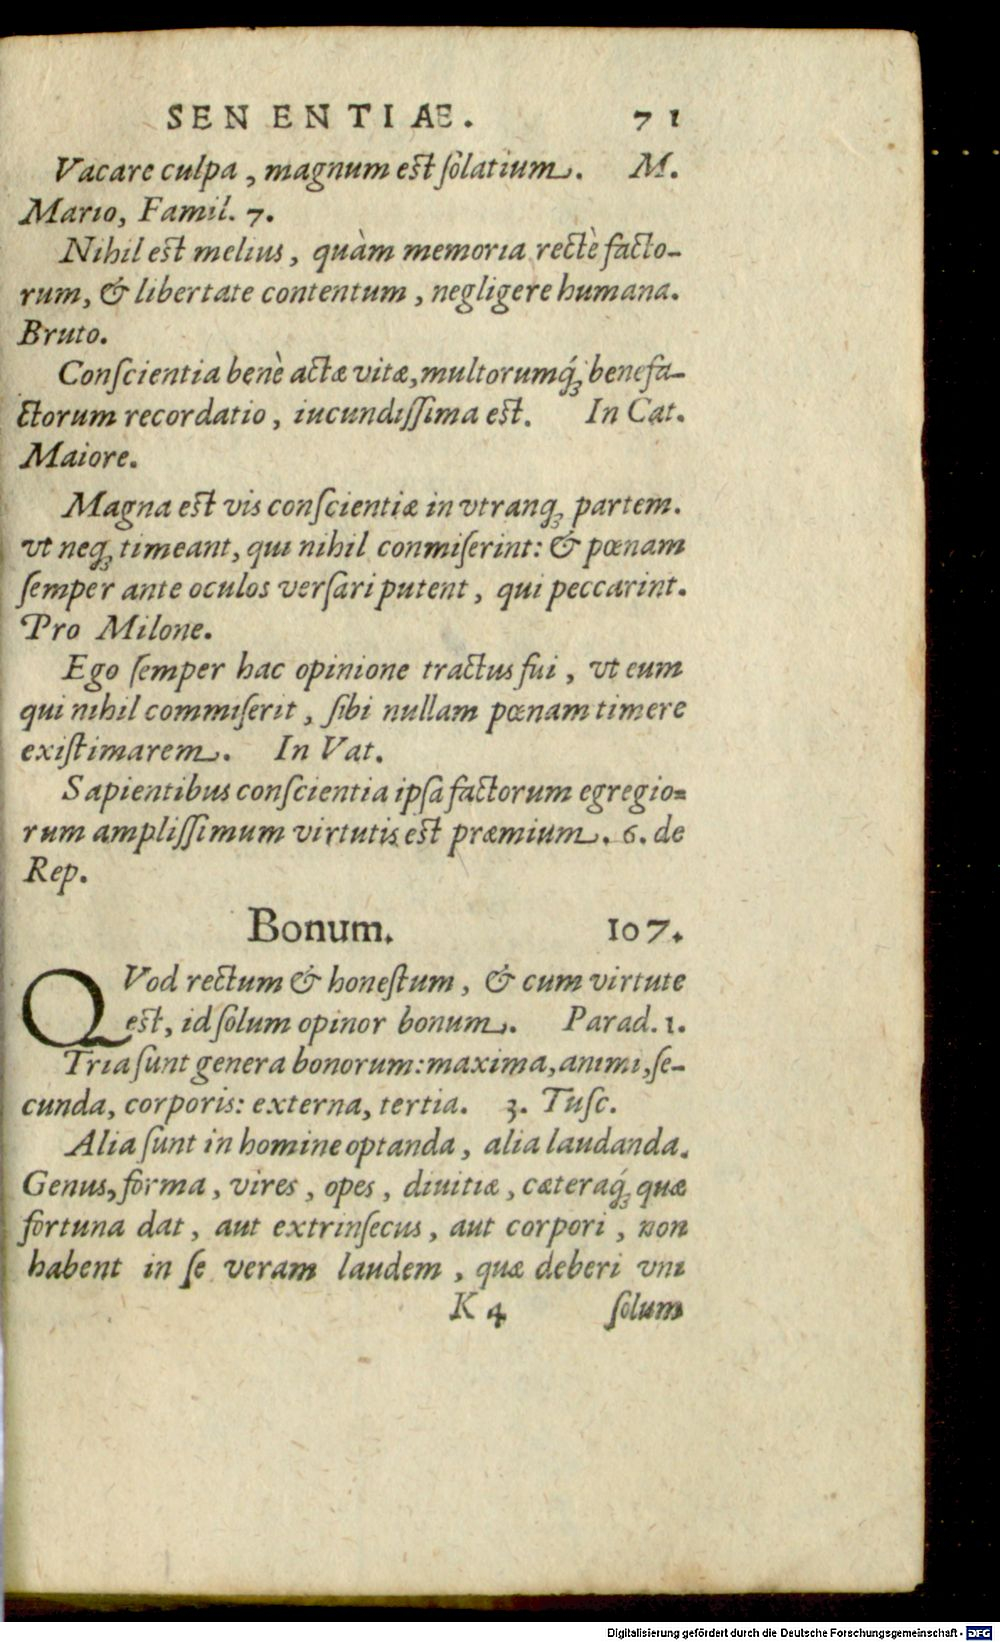 SEN ENTIAE. 71
Vacare culpa, magnum est ſolatium. M.
Mario, Famil. 7.
Nihil est melius, quàm memoria rectè facto-
rum, & libertate contentum, negligere humana.
Bruto.
Conſcientia benè actæ vitæ, multorumq́ꝫ benefa-
ctorum recordatio, iucundiſſima est. In Cat.
Maiore.
Magna est vis conſcientiæ in vtranqꝫ partem.
vt neqꝫ timeant, qui nihil conmiſerint: & pœnam
ſemper ante oculos verſari putent, qui peccarint.
Pro Milone.
Ego ſemper hac opinione tractus fui, vt eum
qui nihil commiſerit, ſibi nullam pœnam timere
exiſtimarem. In Vat.
Sapientibus conſcientia ipſa factorum egregio-
rum ampliſſimum virtutis est præmium. 6. de
Rep.
Bonum. 107.
QVod rectum & honeſtum, & cum virtute
est, id ſolum opinor bonum. Parad. 1.
Tria ſunt genera bonorum: maxima, animi, ſe-
cunda, corporis: externa, tertia. 3. Tuſc.
Alia ſunt in homine optanda, alia laudanda.
Genus, forma, vires, opes, diuitiæ, cæteraq́ꝫ quæ
fortuna dat, aut extrinſecus, aut corpori, non
habent in ſe veram laudem, quæ deberi vni
K 4 ſolum
Digitalisierung gefördert durch die Deutsche Forschungsgemeinschaft - DFG